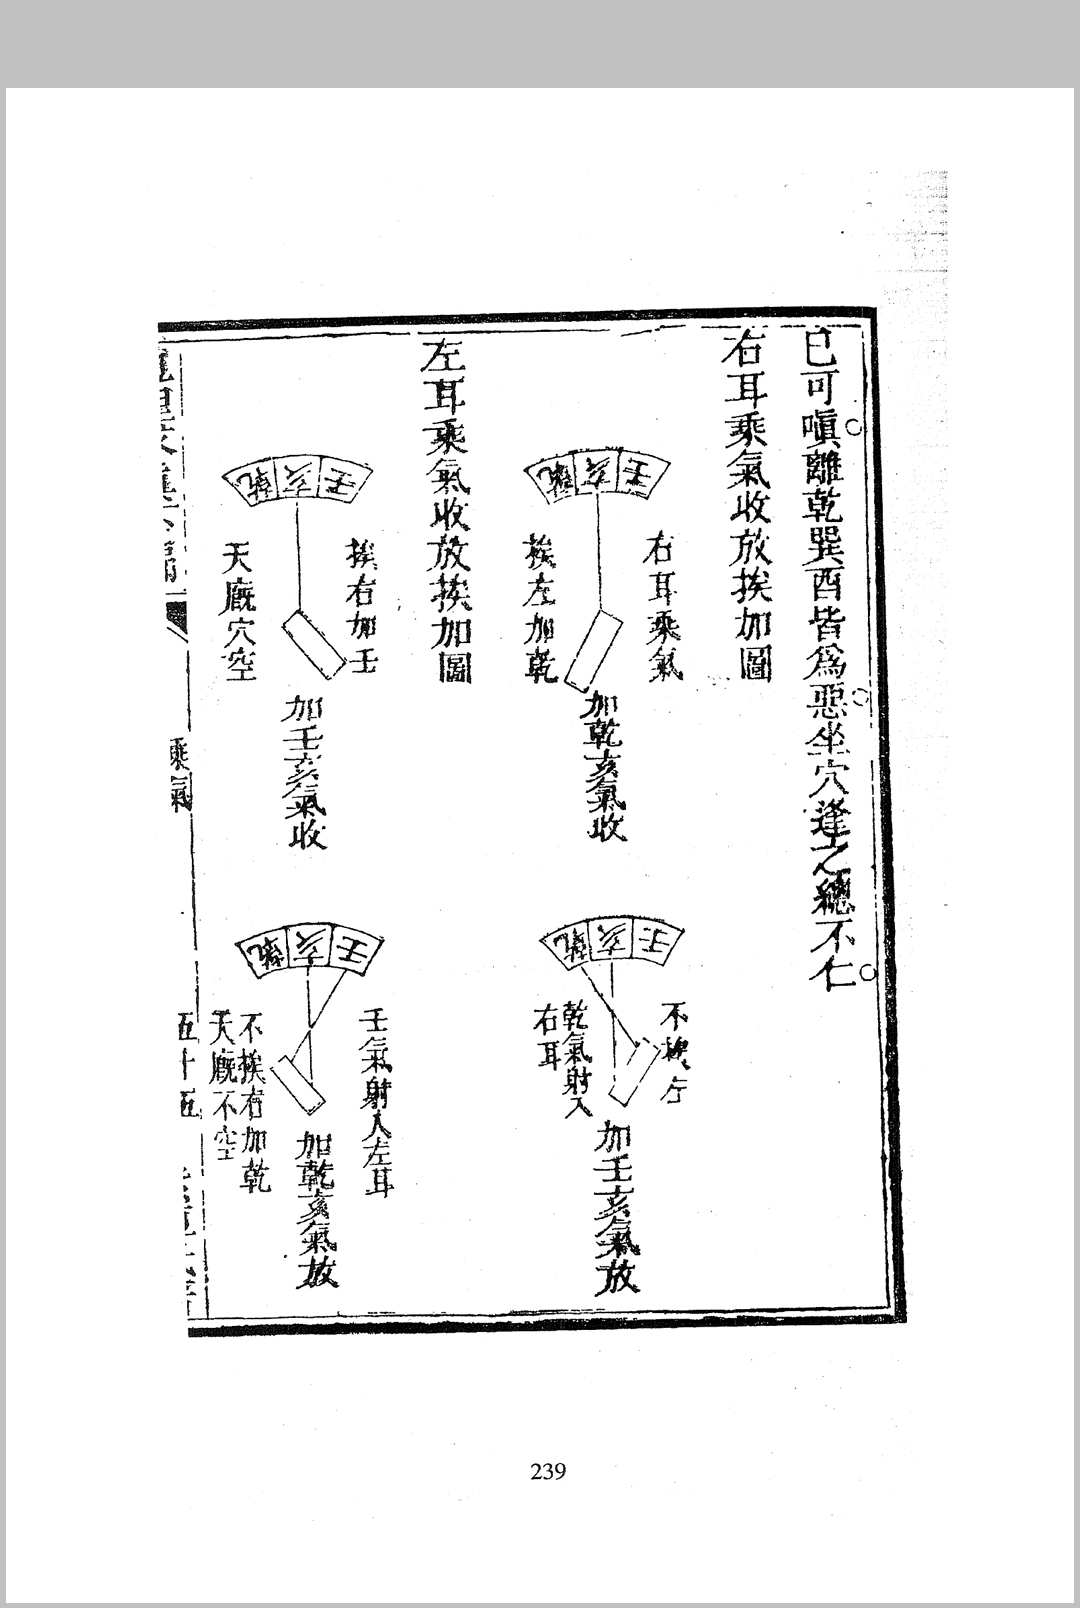 已可嗔離乾巽酉皆為惡坐穴逢之總不仁
右耳乘氣收放挨加圖
壬亥乾
右耳乘氣
挨左加乾
加乾亥氣收
壬亥乾
不挨左
乾氣射入
右耳
加壬亥氣放
左耳乘氣收放挨加圖
壬亥乾
挨右加壬
天廐穴空
加壬亥氣收
壬亥乾
壬氣射入左耳
不挨右加乾
天廐不空
加乾亥氣放
乘氣
五十五
239